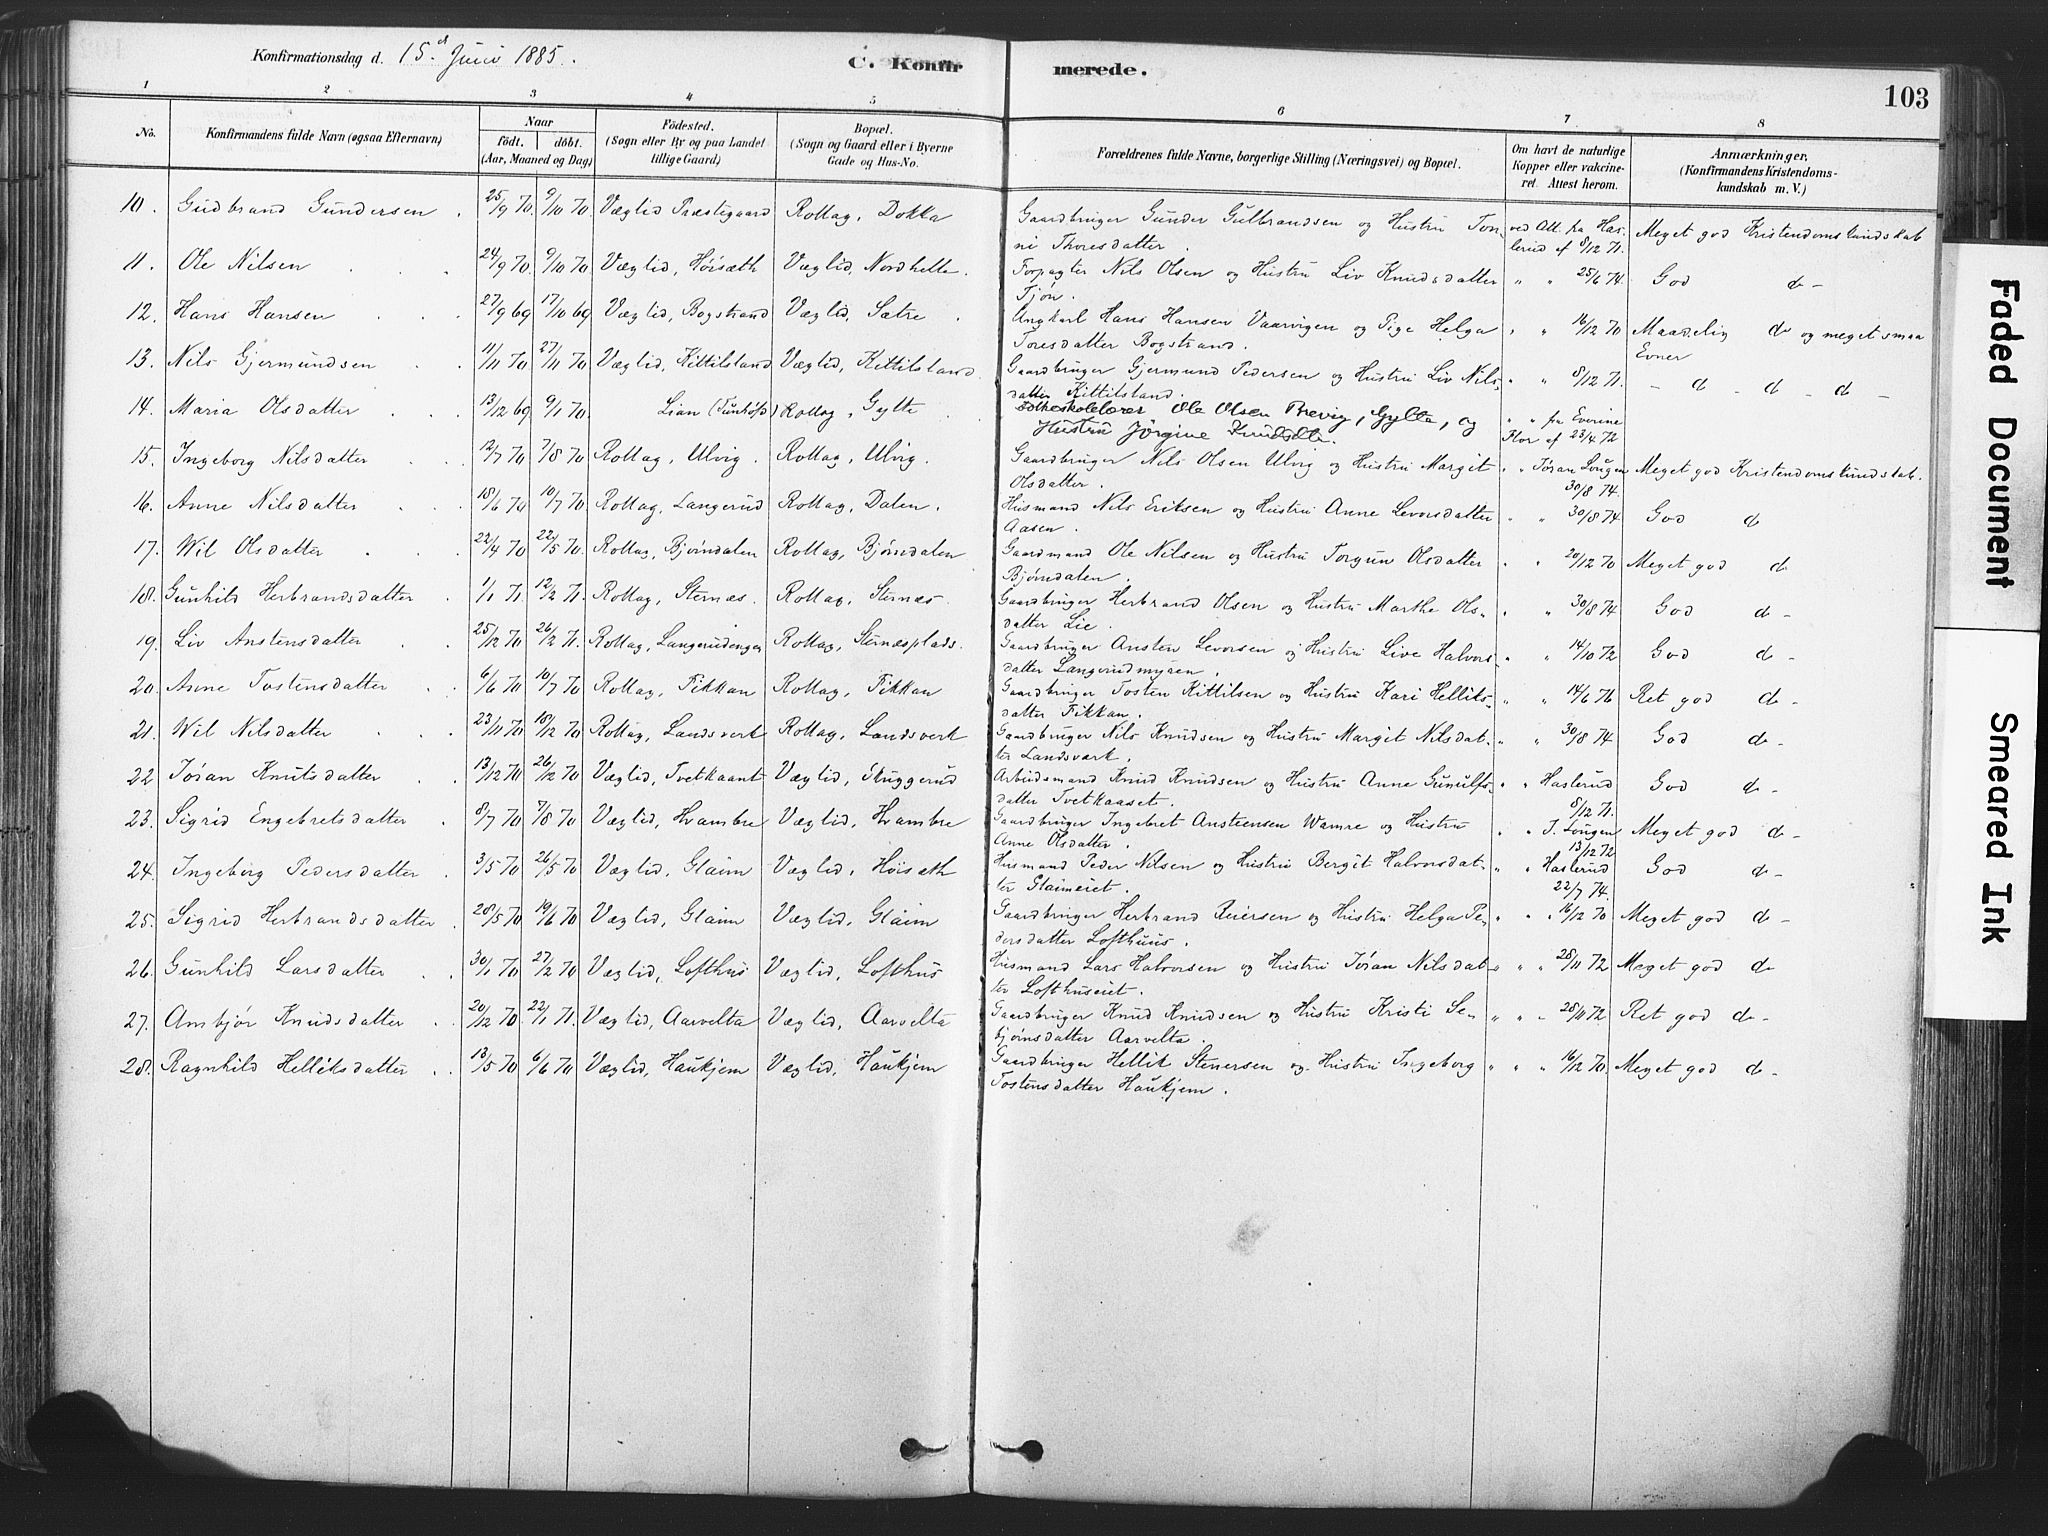 Konfirmationsdag d. 15d Juni 1885.
C. Konfir
merede.
103
1 2 3 4 5 6 7 8
No.
Konfirmandens fulde Navn (ogsaa Efternavn)
Naar
födt. döbt.
(Aar, Maaned og Dag)
Födested.
(Sogn eller By og paa Landet
tillige Gaard)
Bopæl.
(Sogn og Gaard eller i Byerne
Gade og Hus-No.
Forældrenes fulde Navne, borgerlige Stilling (Næringsvei) og Bopæl.
Om havt de naturlige
Kopper eller vakcine-
ret. Attest herom.
Anmærkninger.
(Konfirmandens Kristendoms-
kundskab m. V.)
10. Gudbrand Gundersen 25/9 70. 9/10 70 Væglid Præstegaard Rollag, Dokka Gaardbruger Gunder Gulbrandsen og Hustru Ton- ved Att. fra Has- Meget god Kristendomskundskab
ni Thoresdatter. lerud af 8/12 71.
11. Ole Nilsen 24/9 70. 9/10 70 Væglid, Höisæth Væglid, Nordhelle. Forpagter Nils Olsen og Hustru Liv Knudsdatter " " 25/6 74. God d -
Tjøn.
12. Hans Hansen 27/9 69 17/10 69 Væglid, Bogstrand Væglid, Sætre Ungkarl Hans Hansen Vaarvigen og Pige Helga " " 16/12 70 Maadelig do og meget smaa
Toresdatter Bogstrand. Evner
13. Nils Gjermundsen 11/11 70 27/11 70 Væglid, Kittilsland Væglid, Kittilsland. Gaardbruger Gjermund Pedersen og Hustru Liv Nils- " " 8/12 71. - d - d - d -
datter Kittilsland.
14. Maria Olsdatter 13/12 69 9/1 70. Lian (Tunhöfd) Rollag, Gylte Folkeskolelærer Ole Olsen Trevig, Gylte, og " " fra Everine
Hustru Jörgine Knudsdtr. Flor af 23/4 72
15. Ingeborg Nilsdatter 12/7 70 7/8 70 Rollag, Ulvig. Rollag, Ulvig. Gaardbruger Nils Olsen Ulvig og Hustru Margit " " Jøran Lougen Meget god Kristendomskundskab.
Olsdatter. 30/8 74.
16. Anne Nilsdatter 18/6 70 10/7 70 Rollag, Langerud Rollag, Dalen. Husmand Nils Eriksen og Hustru Anne Levorsdatter " " 30/8 74. God d
Aasen.
17. Wil Olsdatter 22/4 70 22/5 70 Rollag, Bjørndalen Rollag, Bjørndalen Gaardmand Ole Nilsen og Hustru Torgun Olsdatter " " 20/12 70 Meget god d
Bjørndalen.
18. Gunhild Herbrandsdatter 1/1 71. 12/2 71. Rollag, Sternæs. Rollag, Sternæs. Gaardbruger Herbrand Olsen og Hustru Marthe Ols- " " 30/8 74 God d -
datter Lie.
19. Liv Anstensdatter 25/12 70 26/2 71. Rollag, Langerudengen Rollag, Sternæsplads. Gaardbruger Ansten Levorsen og Hustru Live Halvors- " " 14/10 72 God d -
datter Langerudmyren.
20. Anne Tostensdatter 6/6 70 10/7 70 Rollag, Fikkan Rollag, Fikkan Gaardbruger Tosten Kittilsen og Hustru Kari Helliks- " " 14/6 76 Ret god d -
datter Fikkan.
21. Wil Nilsdatter 23/11 70 18/12 70 Rollag, Landsverk Rollag, Landsverk Gaardbruger Nils Knudsen og Hustru Margit Nilsdat- " " 30/8 74 God d -
ter Landsværk.
22 Jöran Knutsdatter 13/12 70 26/12 70 Væglid, Tvetkaant Væglid, Skuggerud Arbeidsmand Knud Knudsen og Hustru Anne Gunulfs- " " Haslerud God d -
datter Tvetkaaset. 8/12 71.
23. Sigrid Engebretsdatter 8/7 70 7/8 70 Væglid, Hvambre Væglid, Hvambre Gaardbruger Ingebret Anstensen Wamre og Hustru " " J. Lougen Meget god d -
Anne Olsdatter. 13/12 72
24. Ingeborg Pedersdatter 3/5 70 26/5 70 Væglid, Glaim Væglid, Höisæth Husmand Peder Nilsen og Hustru Bergit Halvorsdat- " " Haslerud God d -
ter Glaimeiet. 22/7 74.
25. Sigrid Herbrandsdatter 28/5 70 19/6 70 Væglid, Glaim Væglid, Glaim Gaardbruger Herbrand Reiersen og Hustru Helga Pe- " " " 16/12 70 Meget god d -
dersdatter Lofthuus.
26. Gunhild Larsdatter 30/1 70 27/2 70 Væglid, Lofthus Væglid, Lofthus Husmand Lars Halvorsen og Hustru Jöran Nilsdat- " " " 28/11 72 Meget god d
ter Lofthuseiet.
27. Ambjör Knudsdatter 20/12 70. 22/1 71. Væglid, Aarvelta Væglid, Aarvelta Gaardbruger Knud Knudsen og Hustru Kristi Se- " " " 28/11 72 Ret god d -
bjørnsdatter Aarvelta.
28. Ragnhild Helliksdatter 13/5 70 6/6 70 Væglid, Haukjem Væglid, Haukjem Gaardbruger Hellik Stenersen og Hustru Ingeborg " " " 16/12 70. Meget god d -
Tostensdatter Haukjem.
Faded Document
Smeared Ink